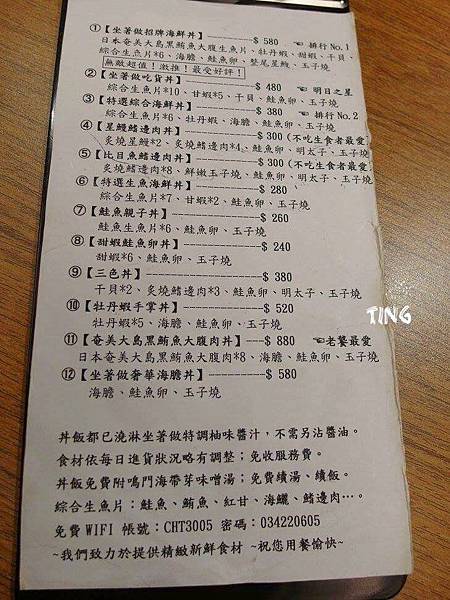 ①【坐著做招牌海鮮丼】-----------$ 580 ☜ 排行 No.1
日本奄美大島黑鮪魚大腹生魚片、牡丹蝦、甜蝦、干貝、
綜合生魚片*6、海膽、鮭魚卵、整尾星鰻、玉子燒
無敵超值！激推！最受好評！
②【坐著做吃貨丼】--------------$ 480 ☜ 明日之星
綜合生魚片*10、甘蝦*5、干貝、鮭魚卵、玉子燒
③【特選綜合海鮮丼】------------$ 380 ☜ 排行 No.2
綜合生魚片*6、牡丹蝦、海膽、鮭魚卵、玉子燒
④【星鰻鰭邊肉丼】--------------$ 300(不吃生食者最愛)
炙燒星鰻*2、炙燒鰭邊肉*4、鮭魚卵、明太子、玉子燒
⑤【比目魚鰭邊肉丼】------------$ 300(不吃生食者最愛)
炙燒鰭邊肉*8、鮮嫩玉子燒、鮭魚卵、明太子、玉子燒
⑥【特選生魚海鮮丼】------------$ 280
綜合生魚片*7、甘蝦*2、鮭魚卵、玉子燒
⑦【鮭魚親子丼】----------------$ 260
鮭魚生魚片*6、鮭魚卵、玉子燒
⑧【甜蝦鮭魚卵丼】--------------$ 240
甜蝦*6、鮭魚卵、玉子燒
⑨【三色丼】--------------------$ 380
干貝*2、炙燒鰭邊肉*3、鮭魚卵、明太子、玉子燒
⑩【牡丹蝦手掌丼】--------------$ 520
牡丹蝦*5、海膽、鮭魚卵、玉子燒
⑪【奄美大島黑鮪魚大腹肉丼】---$ 880 ☜老饕最愛
日本奄美大島黑鮪魚大腹肉*8、海膽、鮭魚卵、玉子燒
⑫【坐著做奢華海膽丼】----------$ 580
海膽、鮭魚卵、玉子燒
丼飯都已澆淋坐著做特調柚味醬汁，不需另沾醬油。
食材依每日進貨狀況略有調整；免收服務費。
丼飯免費附鳴門海帶芽味噌湯；免費續湯、續飯。
綜合生魚片：鮭魚、鮪魚、紅甘、海鱺、鰭邊肉…。
免費 WIFI 帳號：CHT3005 密碼：034220605
~我們致力於提供精緻新鮮食材 ~祝您用餐愉快~
TING